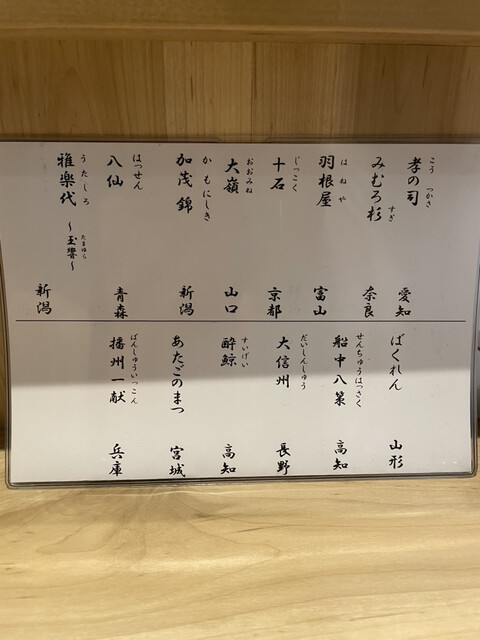 こう つかさ
孝の司 愛知
すぎ
みむろ杉 奈良
はねや
羽根屋 富山
じっこく
十石 京都
おおみね
大嶺 山口
かもにしき
加茂錦 新潟
はっせん
八仙 青森
うたしろ たまゆら
雅楽代 〜玉響〜 新潟
ばくれん 山形
せんちゅうはっさく
船中八策 高知
だいしんしゅう
大信州 長野
すいげい
酔鯨 高知
あたごのまつ 宮城
ばんしゅういっこん
播州一献 兵庫